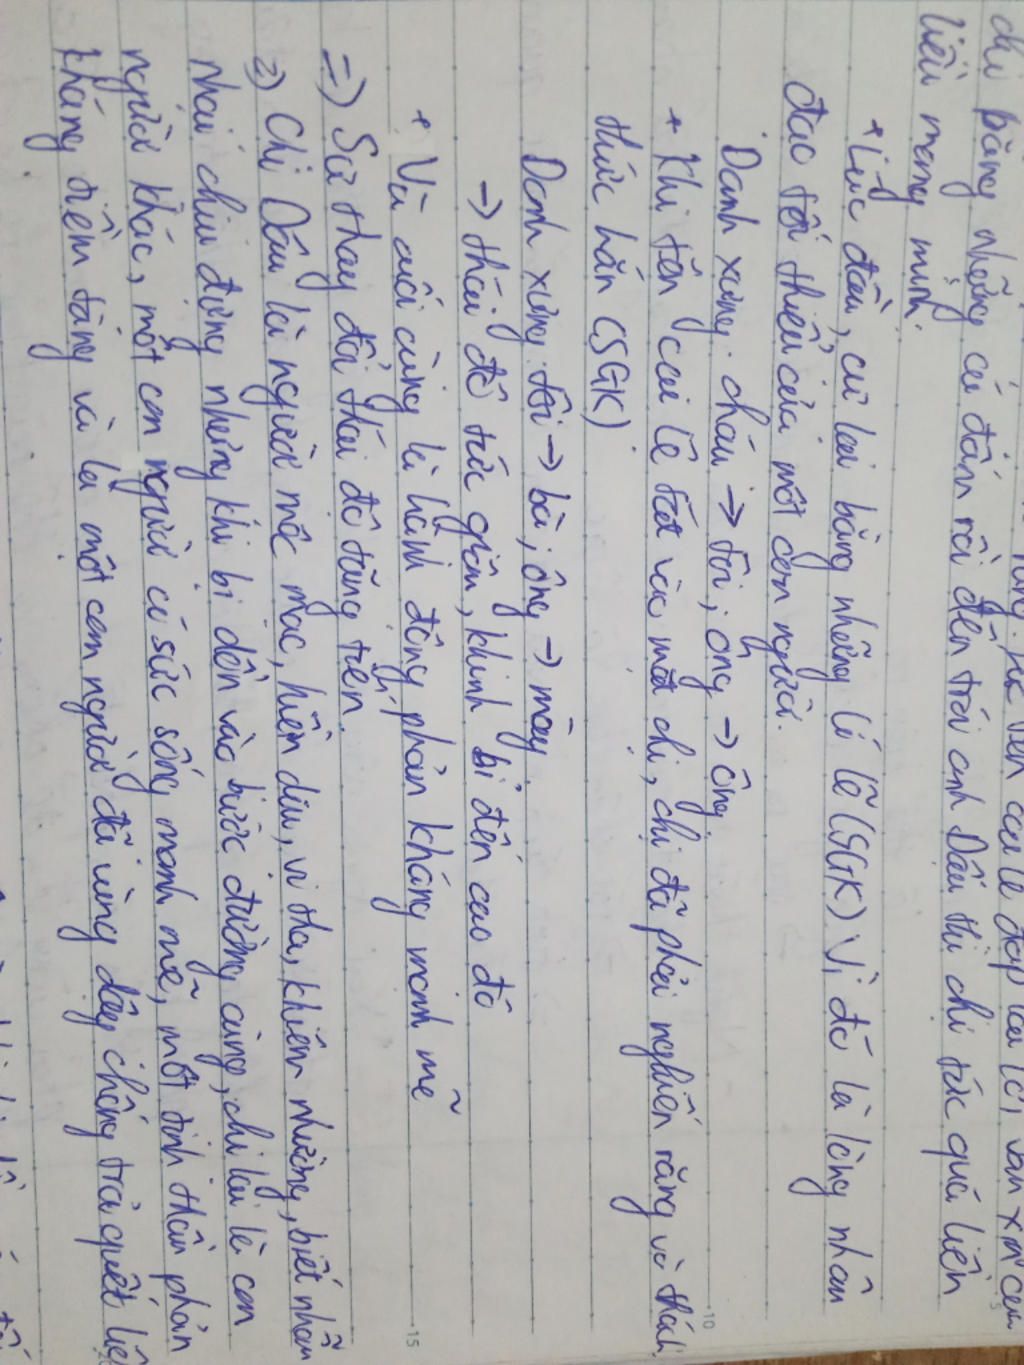 cai lệ đáp lại lời van xin của
chị bằng những cú đấm rồi đến trói anh Dậu thì chị tức quá liền
liều mạng mình.
+ Lúc đầu, cự lại bằng những lí lẽ (SGK) Vì đó là lòng nhân
đức tối thiểu của một con người.
Danh xưng: cháu -> tôi; ông -> ông.
+ Khi tên cai lệ tát vào mặt chị, chị đã phải nghiến răng và thách
thức hắn (SGK)
Danh xưng: tôi -> bà; ông -> mày.
-> thái độ tức giận, khinh bỉ đến cao độ
+ Và cuối cùng là hành động phản kháng mạnh mẽ
=> Sự thay đổi thái độ tăng tiến.
2) Chị Dậu là người mộc mạc, hiền dịu, vị tha, khiêm nhường, biết nhẫn
nhại chịu đựng nhưng khi bị dồn vào bước đường cùng, chị lại là con
người khác, một con người có sức sống mạnh mẽ, một tinh thần phản
kháng tiềm tàng và là một con người đã vùng dậy chống trả quyết liệt
5
10
15